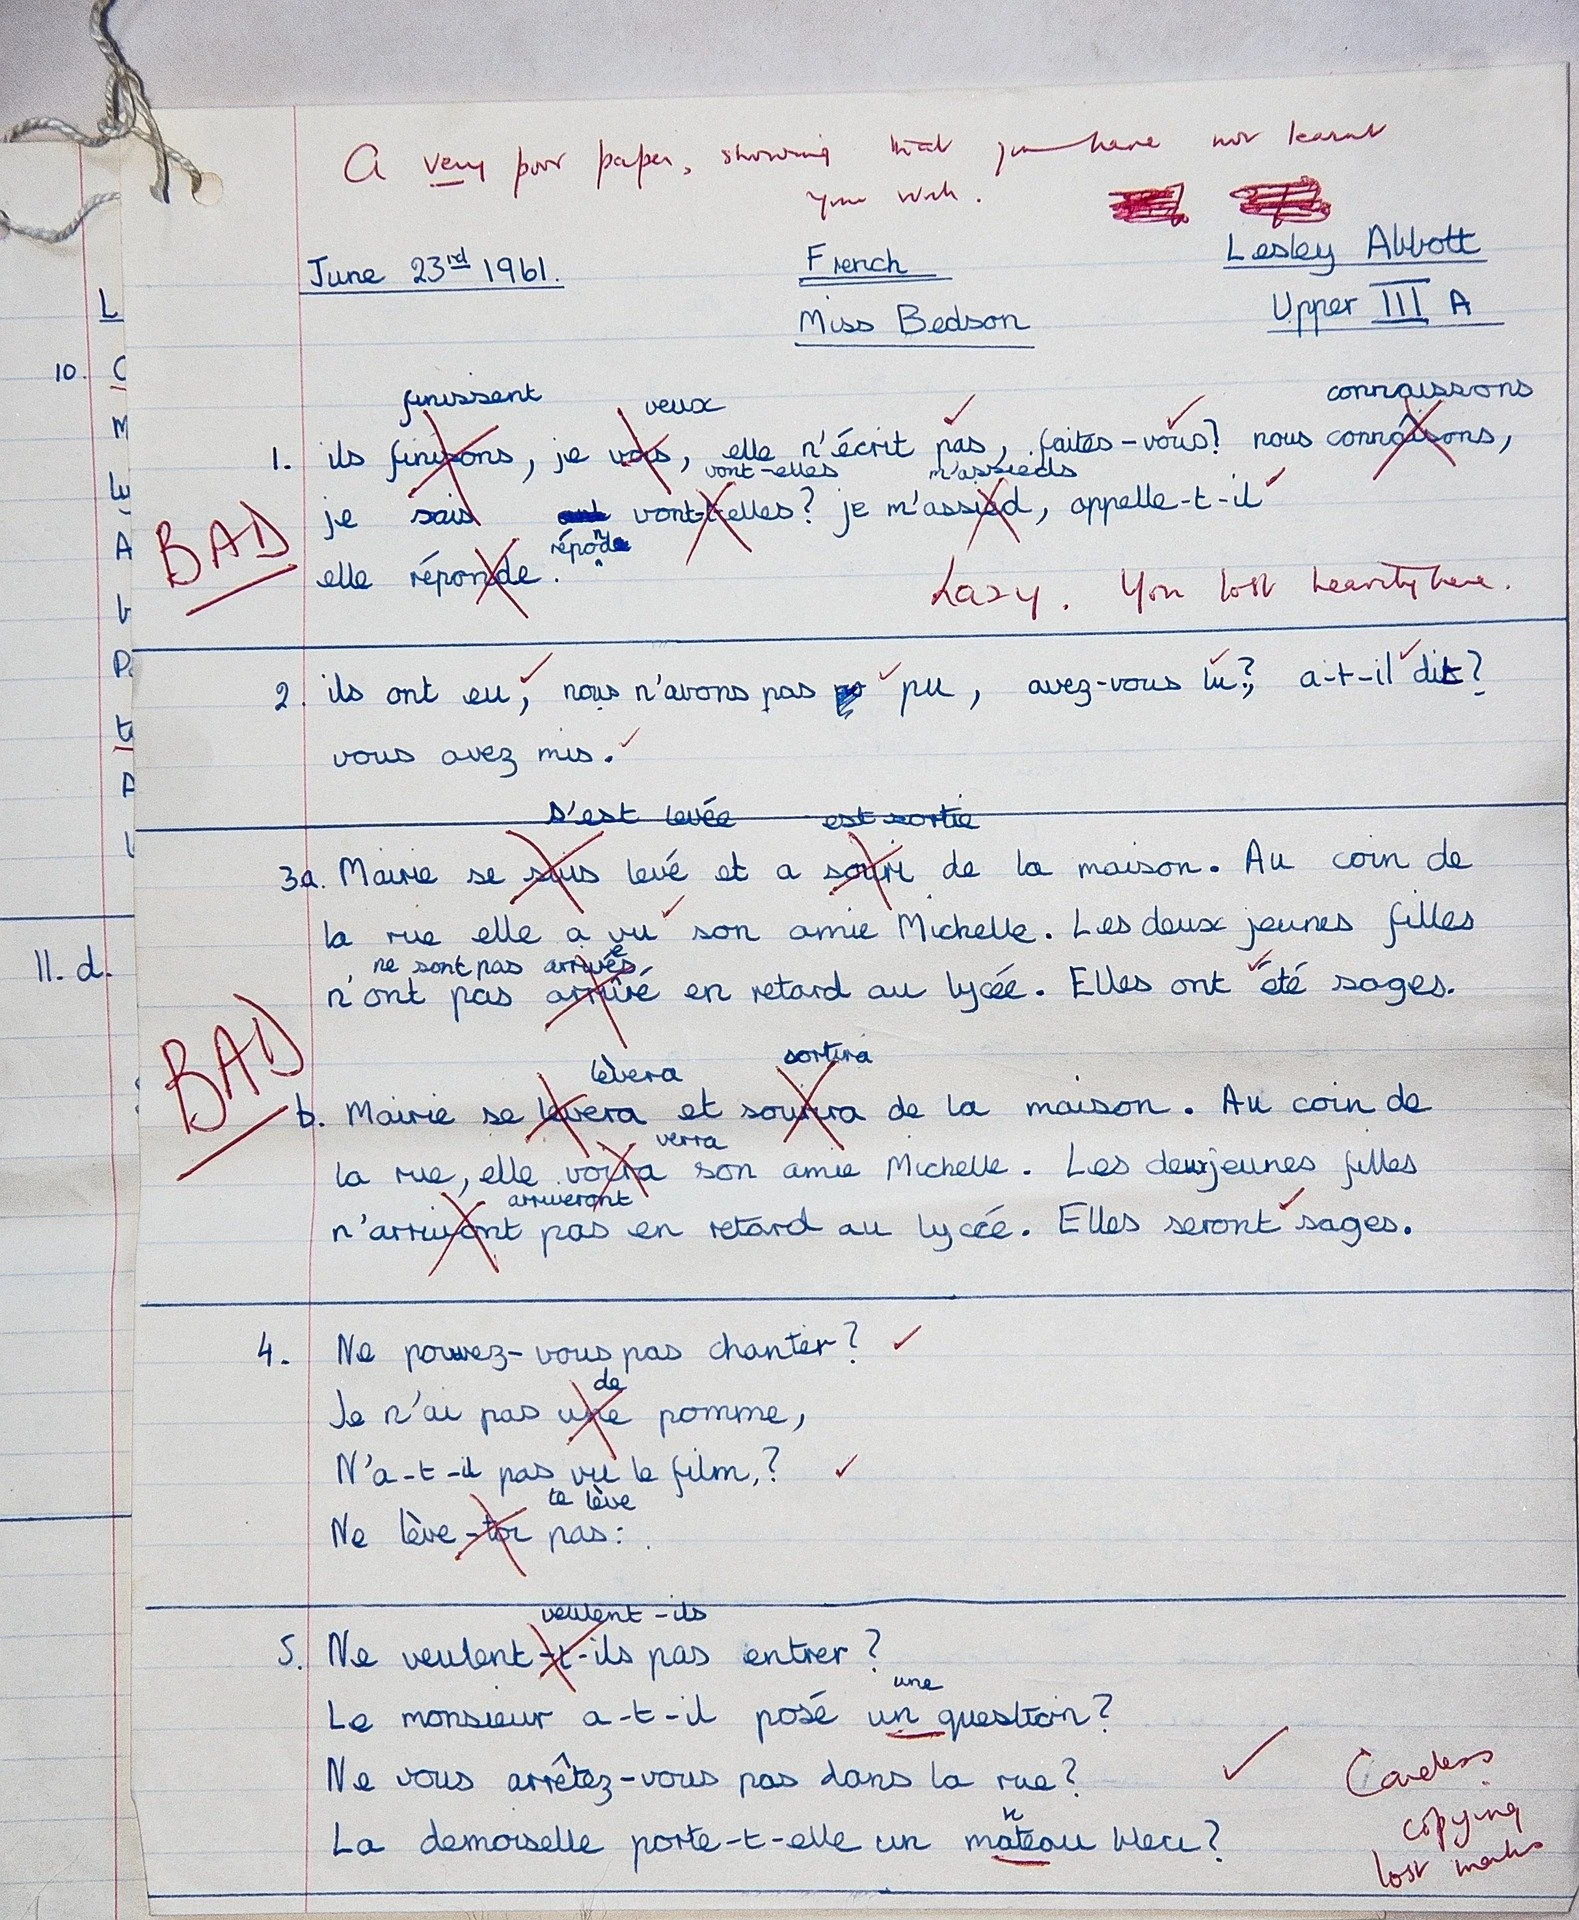 A very poor paper, showing that you have not learnt
your work.
June 23rd 1961.
French
Lesley Abbott
Miss Bedson
Upper III A
L
10. C
M
A
P
A
11. d.
finissent veux connaissons
1. ils finisons, je vois, elle n'écrit pas, faites-vous? nous connaîsons,
vont-elles m'assieds
je sais vont-t-elles? je m'assied, appelle-t-il
BAD
réponde
elle réponde.
Lazy. You lost heavily here.
2. ils ont eu, nous n'avons pas pu, avez-vous lu?, a-t-il dit?
vous avez mis.
s'est levée est sortie
3a. Mairie se suis levé et a souri de la maison. Au coin de
la rue elle a vu son amie Michelle. Les deux jeunes filles
ne sont pas arrivées
n'ont pas arrivé en retard au lycée. Elles ont été sages.
BAD
lèvera sortira
b. Mairie se levera et sourira de la maison. Au coin de
verra
la rue, elle voira son amie Michelle. Les deux jeunes filles
arriveront
n'arrivont pas en retard au lycée. Elles seront sages.
4. Ne pouvez-vous pas chanter?
de
Je n'ai pas une pomme,
N'a-t-il pas vu le film,?
te lève
Ne lève-toi pas:.
veulent-ils
5. Ne veulent-t-ils pas entrer?
une
Le monsieur a-t-il posé un question?
Ne vous arrêtez-vous pas dans la rue?
n
La demoiselle porte-t-elle un mateau bleu?
Careless
copying
lost marks